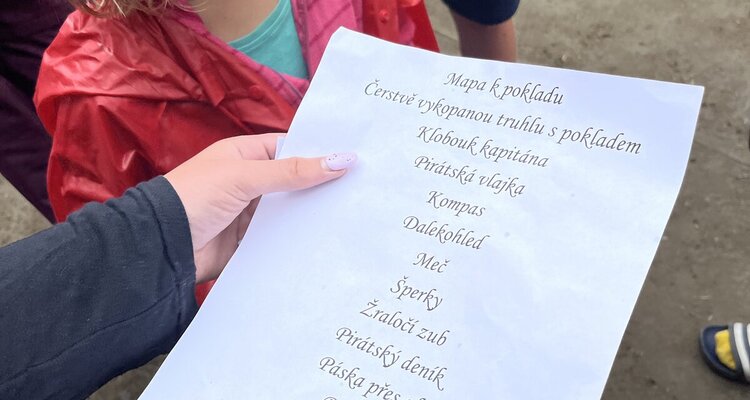 Mapa k pokladu
Čerstvě vykopanou truhlu s pokladem
Klobouk kapitána
Pirátská vlajka
Kompas
Dalekohled
Meč
Šperky
Žraločí zub
Pirátský deník
Páska přes